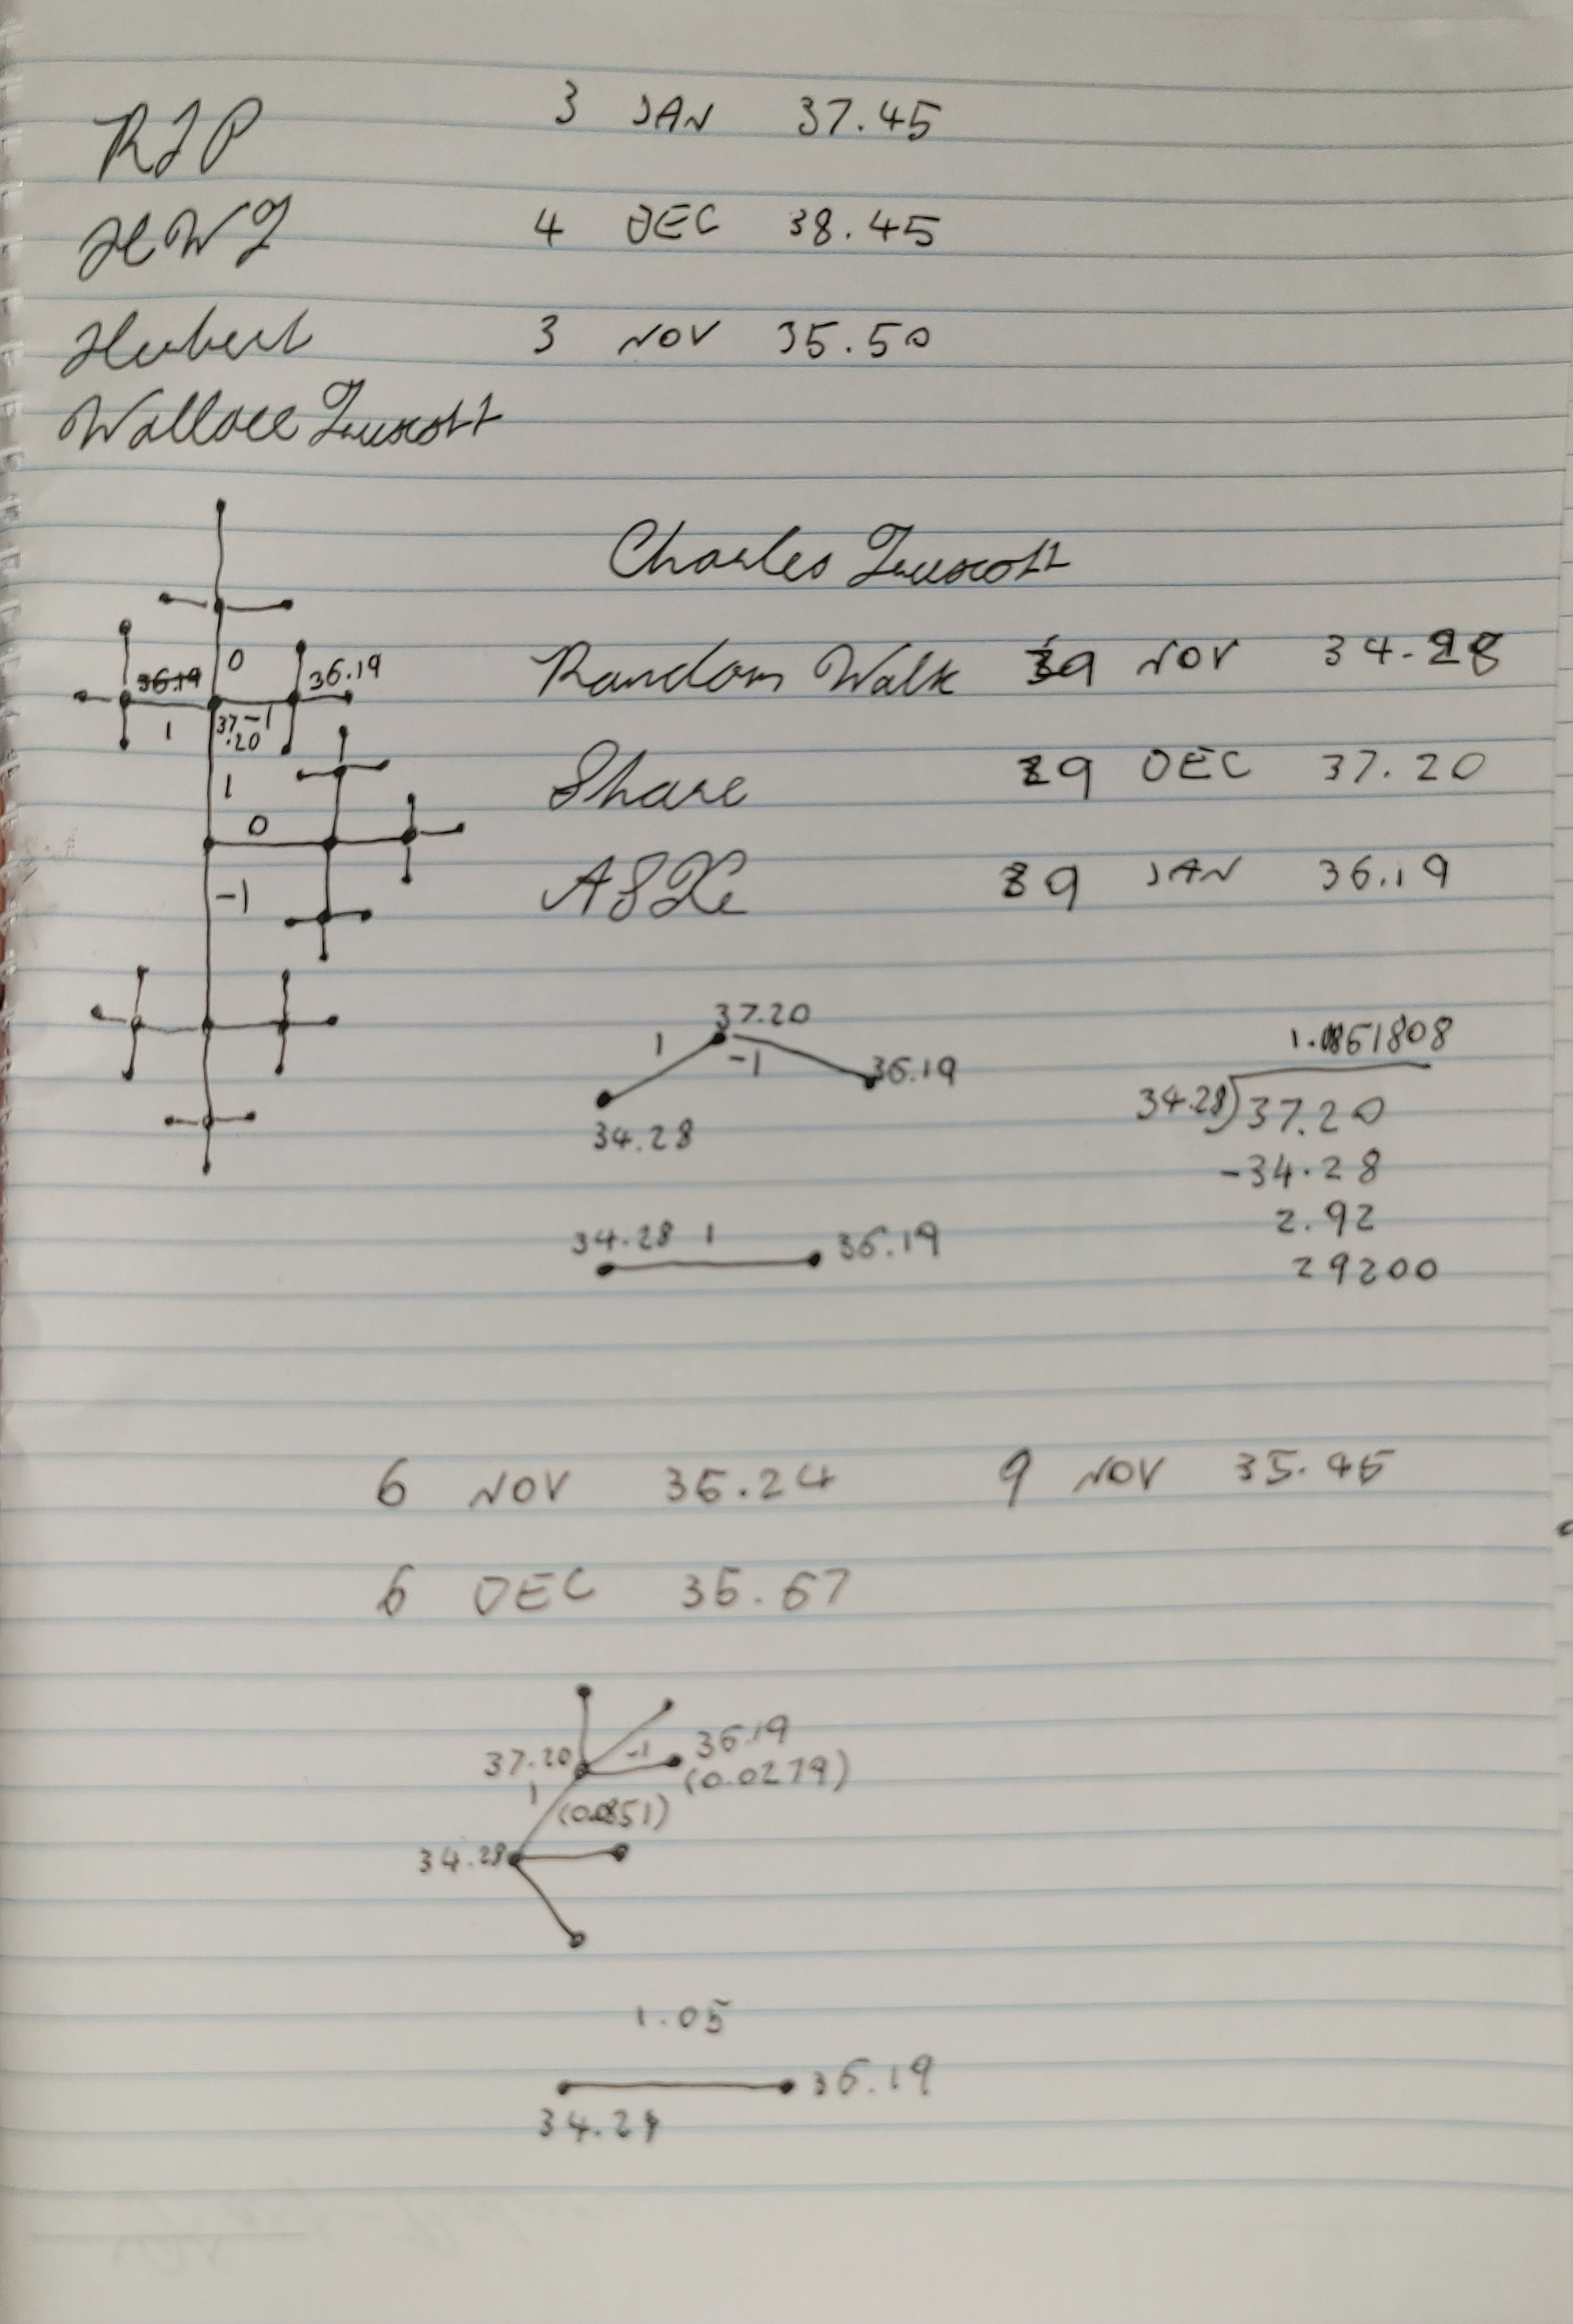 RIP 3 JAN 37.45
HWT 4 DEC 38.45
Herbert 3 NOV 35.50
Wallace Truscott
Charles Truscott
Random Walk 29 NOV 34.28
Share 29 DEC 37.20
ASX 29 JAN 36.19
0
36.19 36.19
1 37.20 -1
1
0
-1
37.20
1 -1 36.19
34.28
1.0851808
34.28)37.20
-34.28
2.92
29200
34.28 1 36.19
6 NOV 36.24 9 NOV 35.45
6 DEC 36.67
37.20 -1 36.19
(0.0279)
1 (0.0851)
34.28
1.05
36.19
34.28